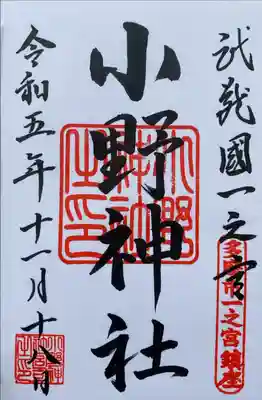 武蔵國一之宮
多摩市一之宮鎮座
小野神社
小野神社之印
令和五年十一月十八日